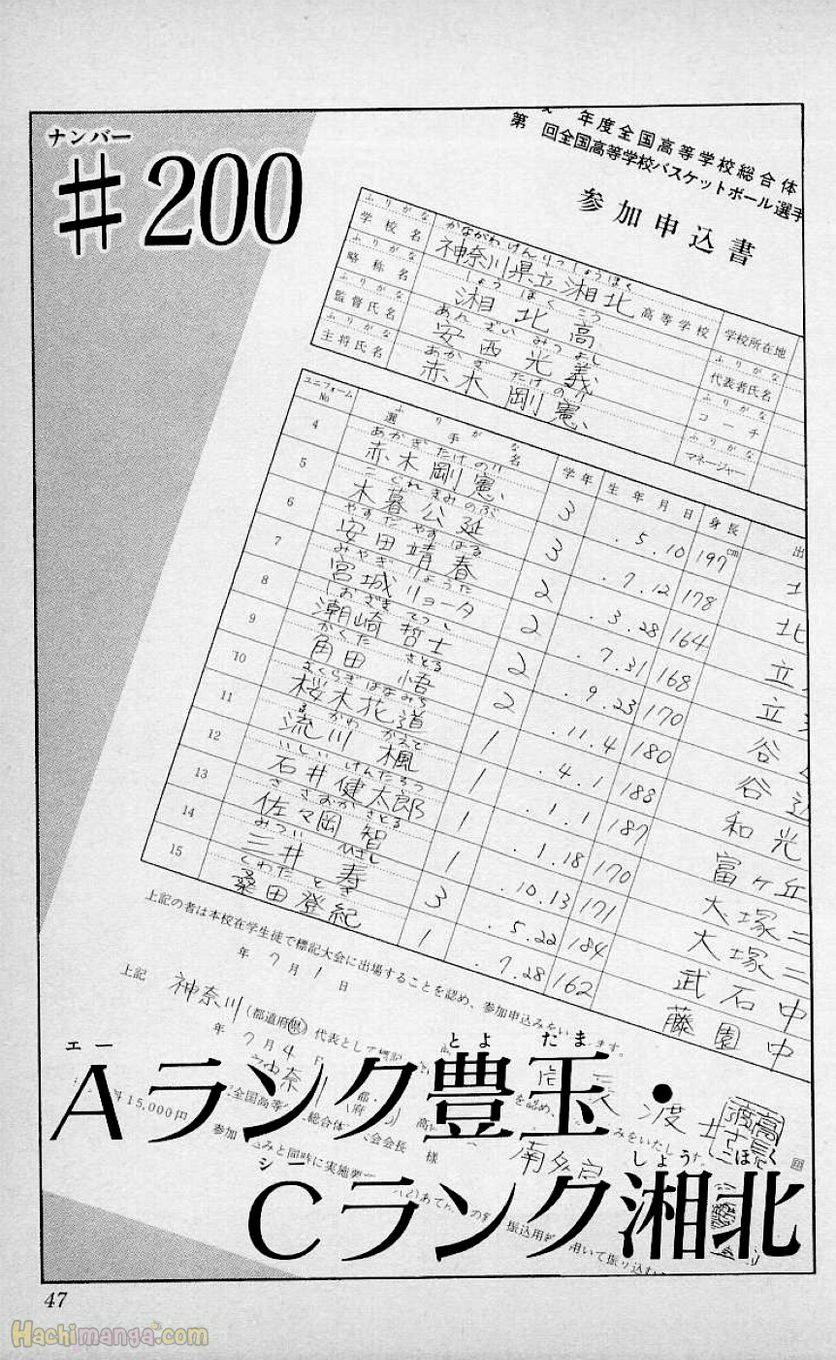 ナンバー
#200
年度全国高等学校総合体
第 回全国高等学校バスケットボール選手
参加申込書
ふりがな かながわけんりつしょうほく
学校名 神奈川県立湘北高等学校 学校所在地
ふりがな しょうほくこう ふりがな
略称名 湘北高 代表者氏名
ふりがな あんざいみつよし ふりがな
監督氏名 安西光義 コーチ
ふりがな あかぎたけのり ふりがな
主将氏名 赤木剛憲 マネージャー
ユニフォームNo ふりがな 選手名 学年 生年月日 身長 出
4 あかぎたけのり 赤木剛憲 3 .5.10 197cm
5 こぐれきみのぶ 木暮公延 3 .7.12 178 北
6 やすだやすはる 安田靖春 2 .3.28 164 立
7 みやぎりょうた 宮城リョータ 2 .7.31 168 立
8 しおざきてつし 潮崎哲士 2 .9.23 170 谷
9 かくたさとる 角田悟 2 .11.4 180 谷
10 さくらぎはなみち 桜木花道 1 .4.1 188 和光
11 るかわかえで 流川楓 1 .1.1 187 富ヶ丘
12 いしいけんたろう 石井健太郎 1 .1.18 170 大塚二
13 ささおかさとる 佐々岡智 1 .10.13 171 大塚二
14 みついひさし 三井寿 3 .5.22 184 武石中
15 くわたとき 桑田登紀 1 .7.28 162 藤園中
上記の者は本校在学生徒で標記大会に出場することを認め、参加申込みをいたします。
年7月1日
上記 神奈川(都道府県)代表として標記
年7月4日
神奈川
全国高等 総合体 会会長 様
料15,000円
参加 込みと同時に実施要
振込用紙 用いて振り込む
エー とよ たま
Aランク豊玉・
シー しょう ほく
Cランク湘北
47
Hachimanga.com